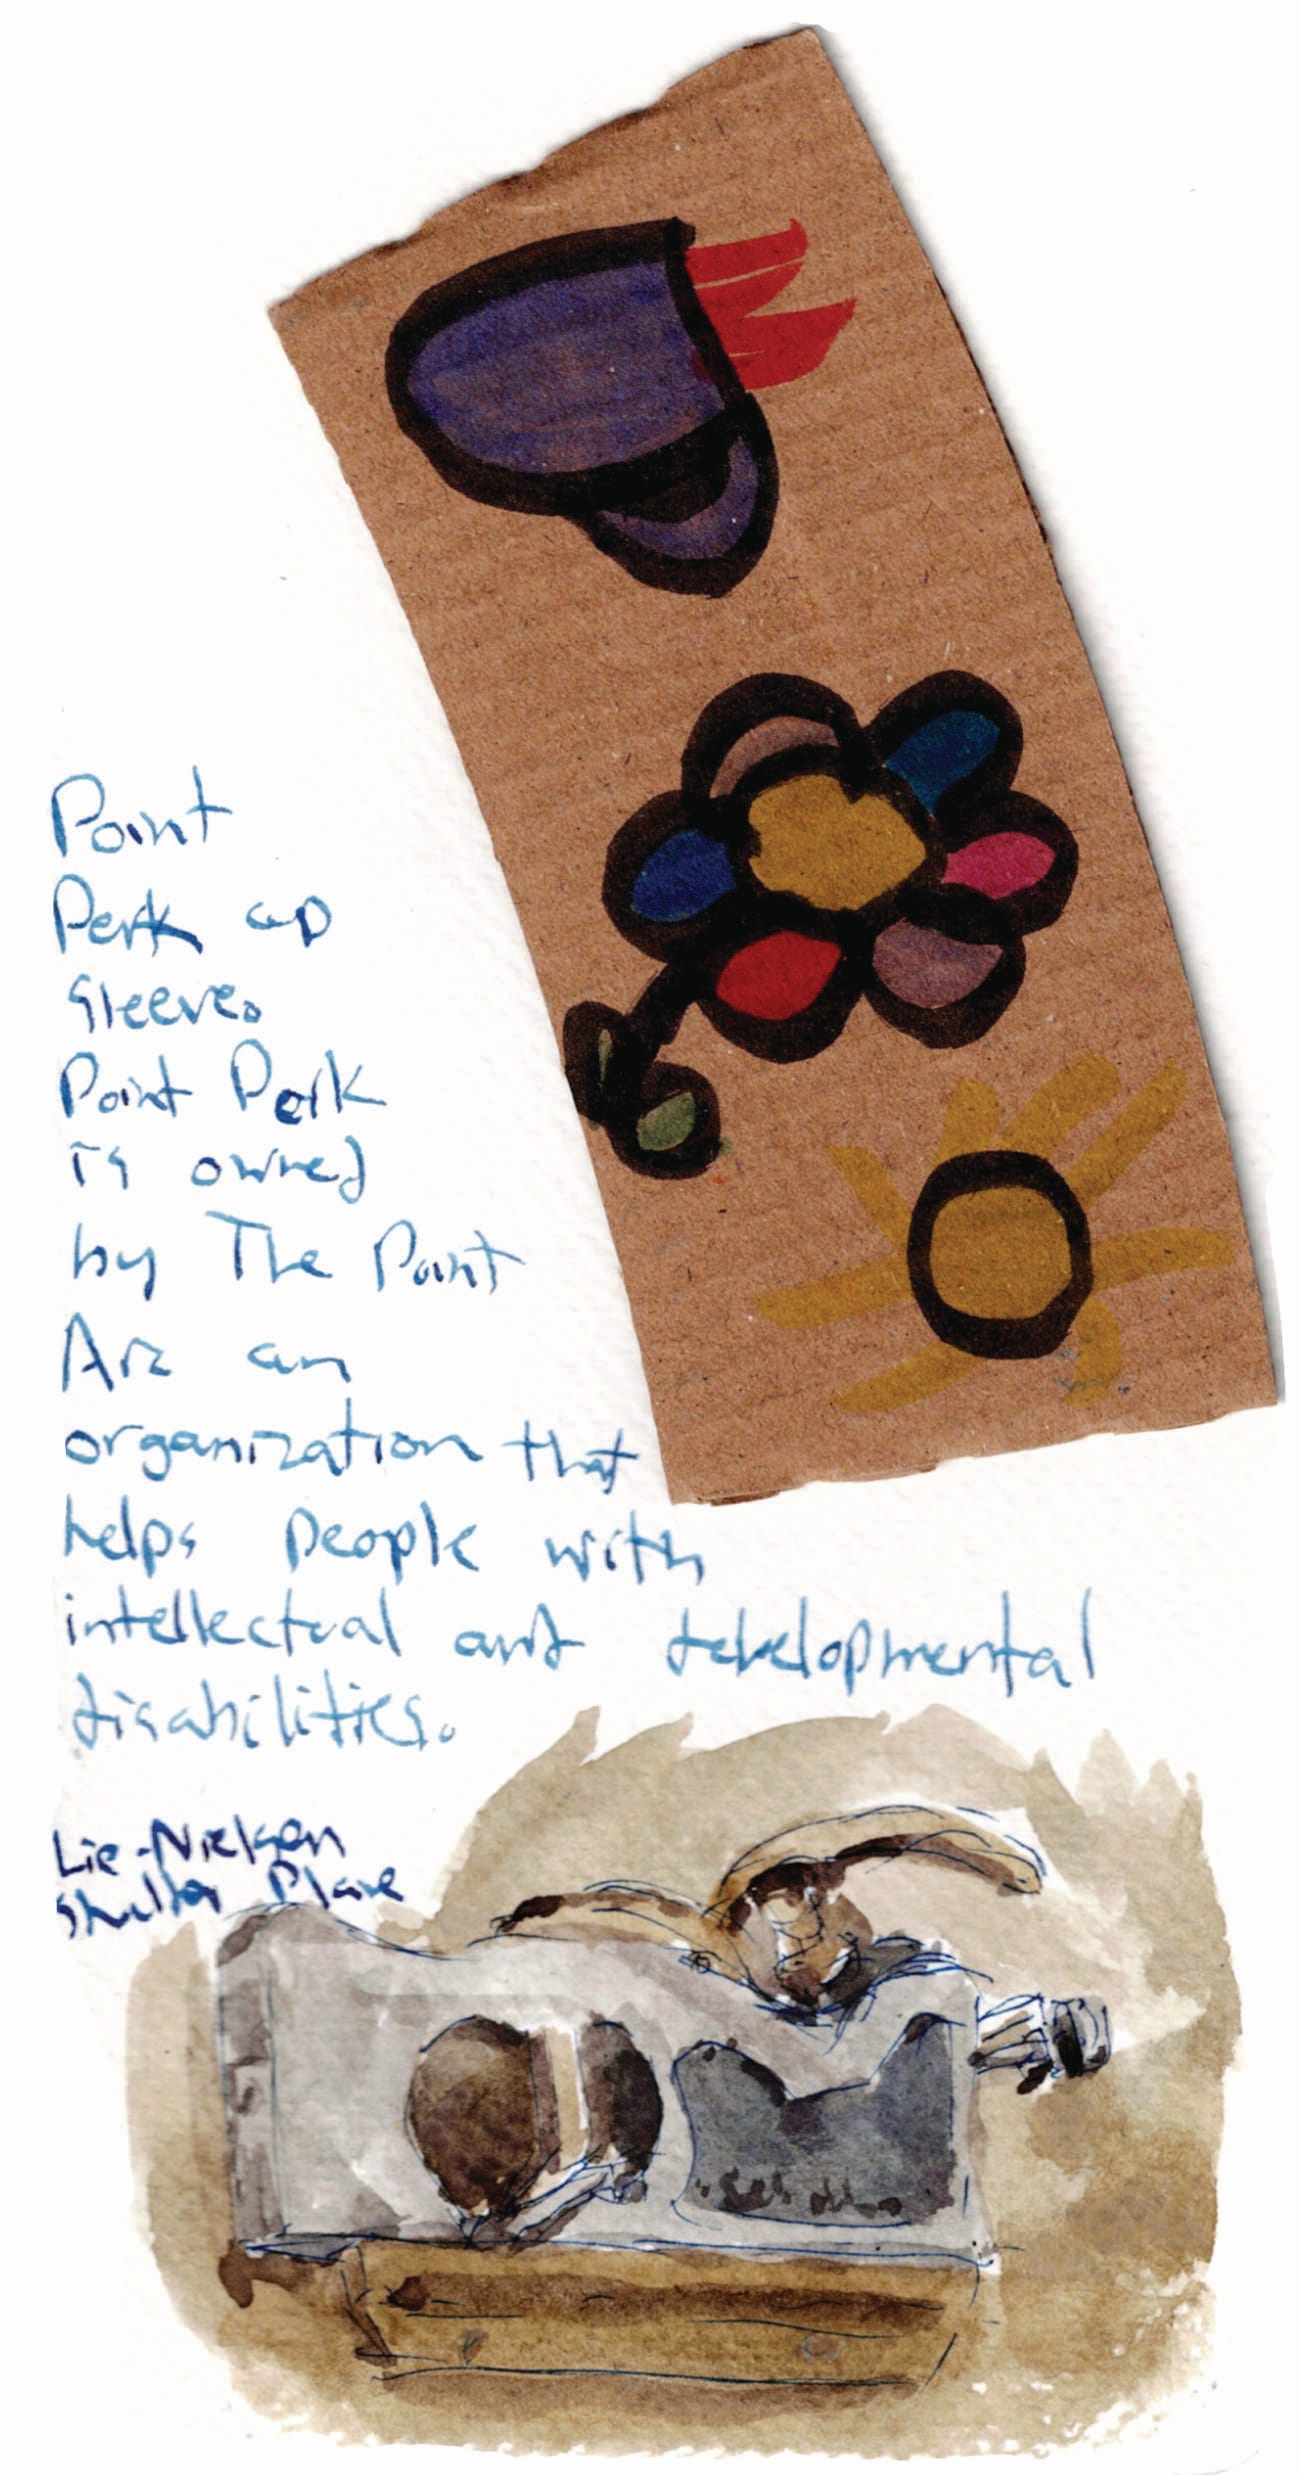 Point
Perk cup
sleeve.
Point Perk
is owned
by The Point
Arc an
organization that
helps people with
intellectual and developmental
disabilities.
Lie-Nielsen
Plane